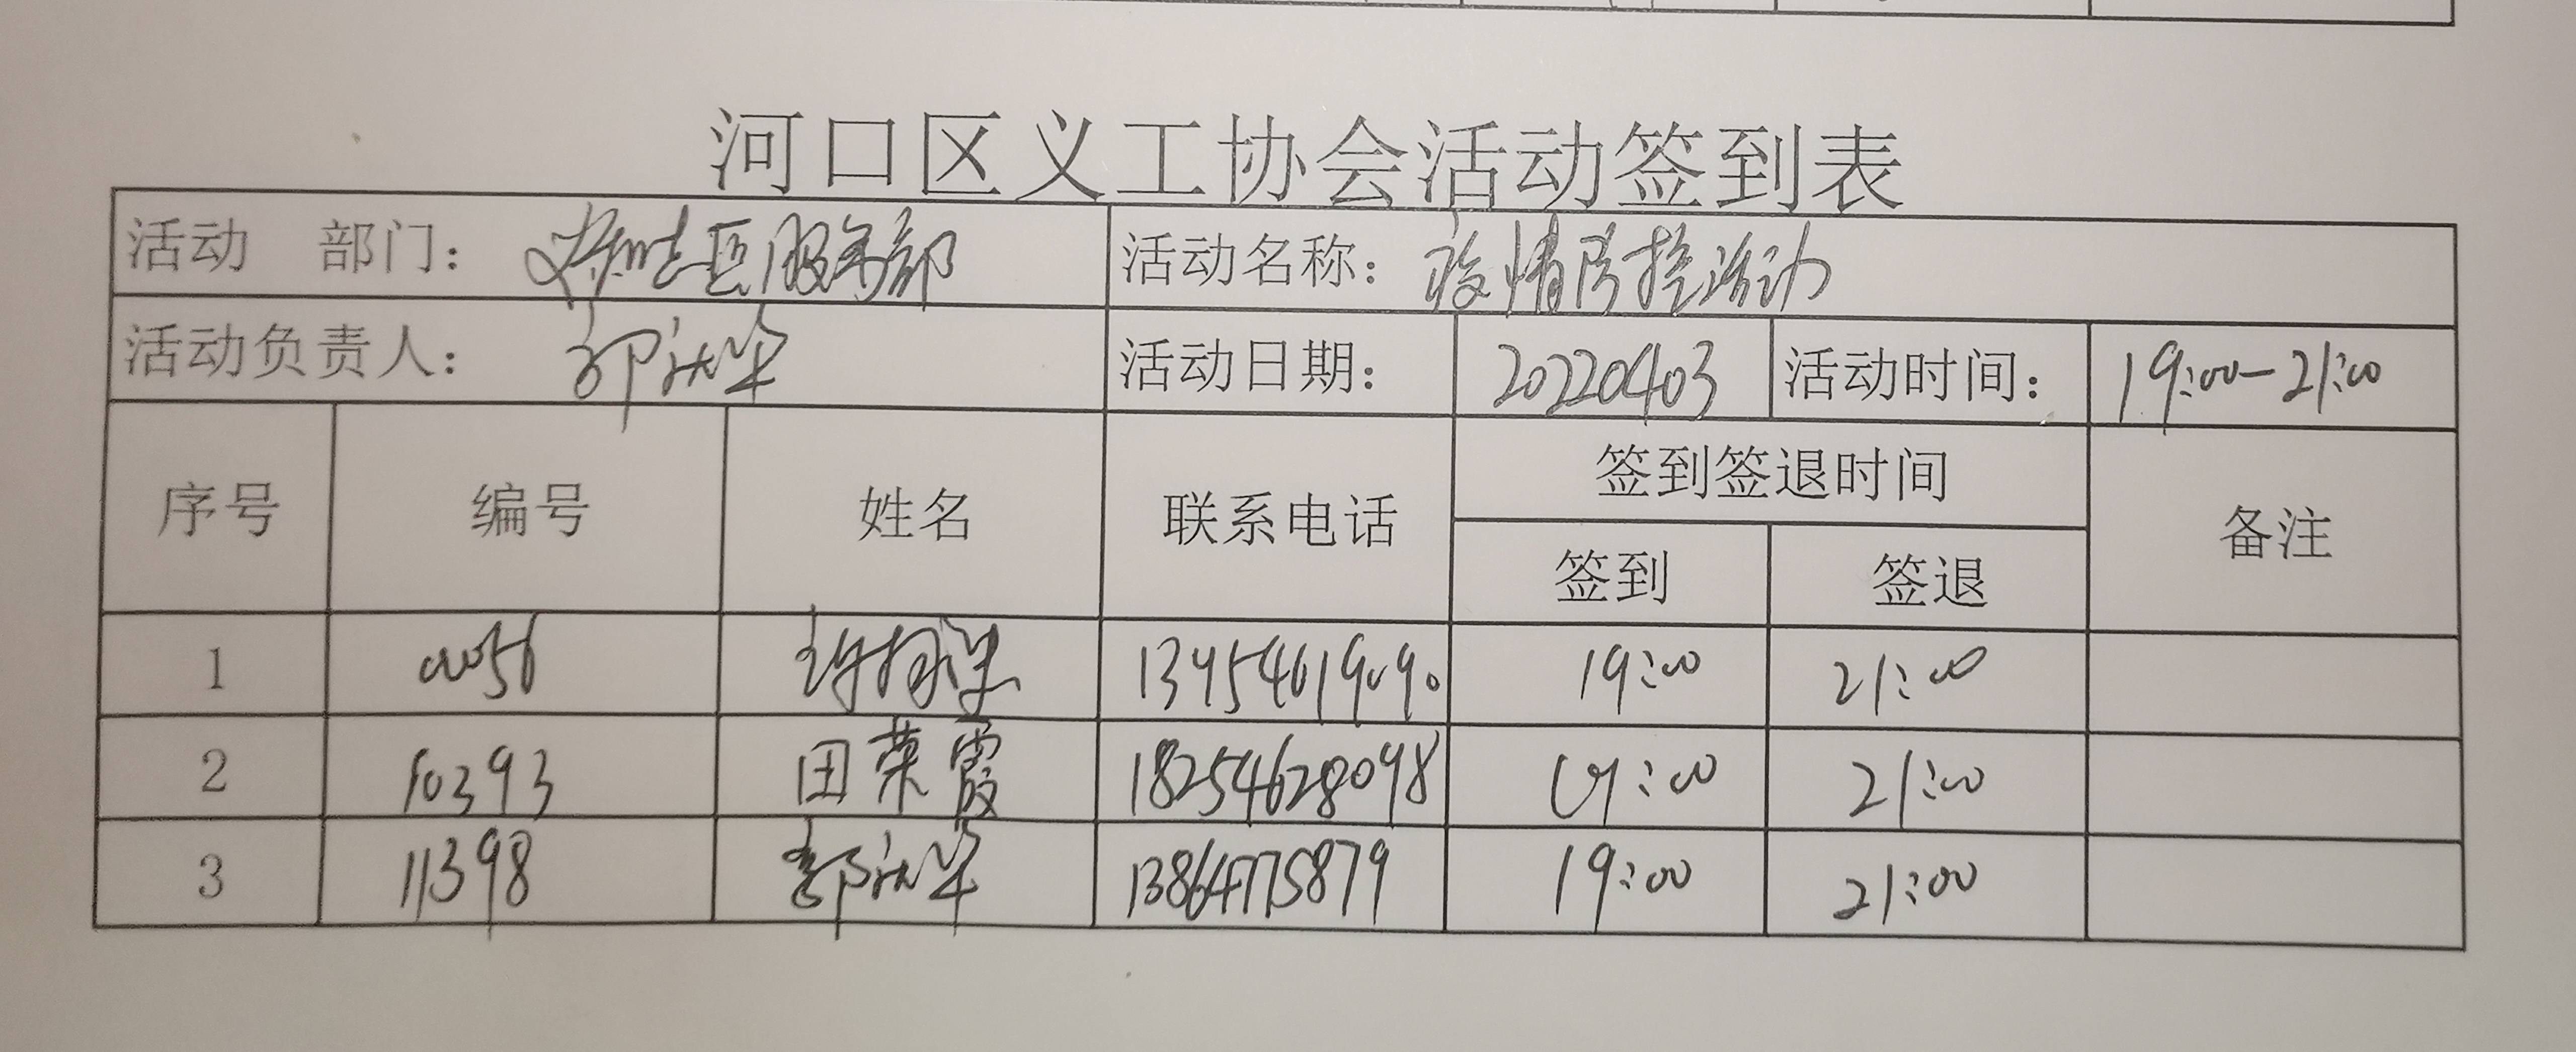 河口区义工协会活动签到表
活动 部门： 区服务部 活动名称：疫情防控活动
活动负责人： 活动日期： 20220403 活动时间： 19:00-21:00
序号 编号 姓名 联系电话 签到签退时间 备注
签到 签退
1 0056 13454619090 19:00 21:00
2 10393 田荣霞 18254628098 19:00 21:00
3 11398 13864775879 19:00 21:00